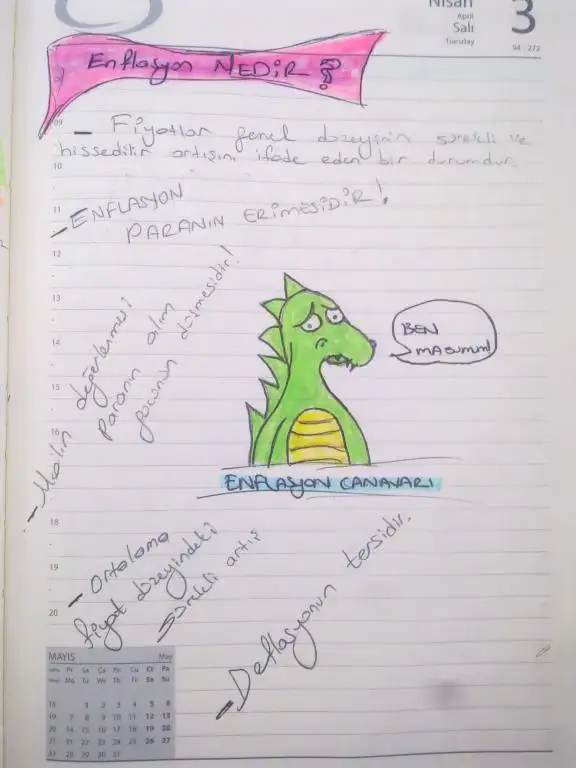 Nisan
April
Salı
Tuesday
3
94 - 272
Enflasyon NEDİR ?
09
- Fiyatlar genel düzeyinin sürekli ve
hissedilir artışını ifade eden bir durumdur.
10
11
- ENFLASYON
PARANIN ERİMESİDİR!
12
13
14
15
16
- Malın değerlenmesi
Paranın alım
gücünün düşmesidir!
BEN
MASUMUM!
ENFLASYON CANAVARI
18
19
20
- Ortalama
fiyat düzeyindeki
sürekli artış
- Deflasyonun tersidir.
MAYIS May
Pt Sa Ça Pe Cu Ct Pa
Mo Tu We Th Fr Sa Su
18 1 2 3 4 5 6
19 7 8 9 10 11 12 13
20 14 15 16 17 18 19 20
21 21 22 23 24 25 26 27
22 28 29 30 31